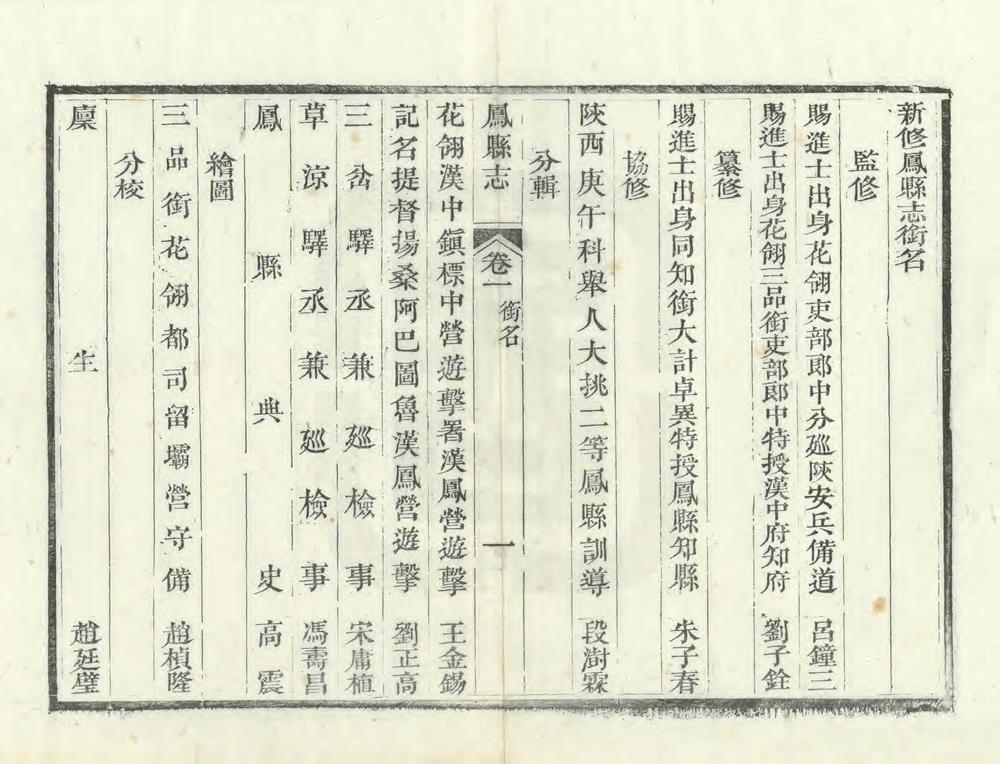 新修鳳縣志銜名
監修
賜進士出身花翎吏部郎中分廵陝安兵備道 呂鐘三
賜進士出身花翎三品銜吏部郎中特授漢中府知府 劉子銓
纂修
賜進士出身同知銜大計卓異特授鳳縣知縣 朱子春
協修
陝西庚午科舉人大挑二等鳳縣訓導 段澍霖
分輯
鳳縣志 卷一 銜名 一
花翎漢中鎭標中營遊擊署漢鳳營遊擊 王金錫
記名提督揚桑阿巴圖魯漢鳳營遊擊 劉正高
三岔驛丞兼廵檢事 宋庸植
草涼驛丞兼廵檢事 馮壽昌
鳳縣典史 高震
繪圖
三品銜花翎都司留壩營守備 趙楨隆
分校
廩生 趙廷璧